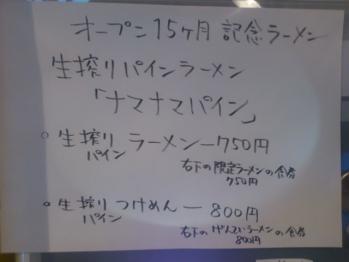 オープン15ヶ月 記念ラーメン
生搾りパインラーメン
「ナマナマパイン」
○ 生搾りパイン ラーメン ー 750円
右下の限定ラーメンの食券
750円
○ 生搾りパイン つけめん ー 800円
右下のげんていラーメンの食券
800円